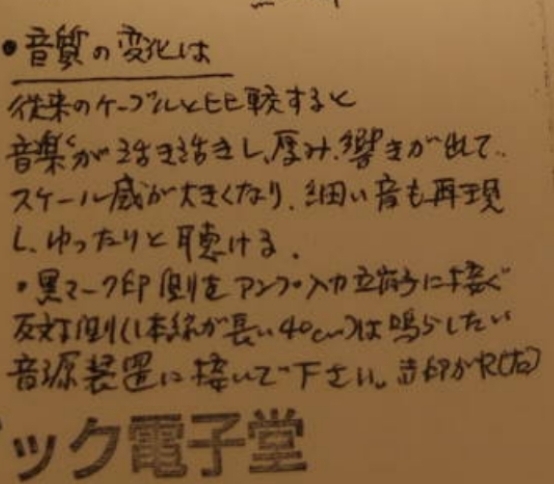 ●音質の変化は
従来のケーブルと比較すると
音楽が活き活きし、厚み、響きが出て、
スケール感が大きくなり、細い音も再現
し、ゆったりと聴ける。
・黒マーク印側をアンプ入力端子に接ぐ
反対側(1本線が長い40cm)は鳴らしたい
音源装置に接いで下さい。赤印がR(右)
ック電子堂